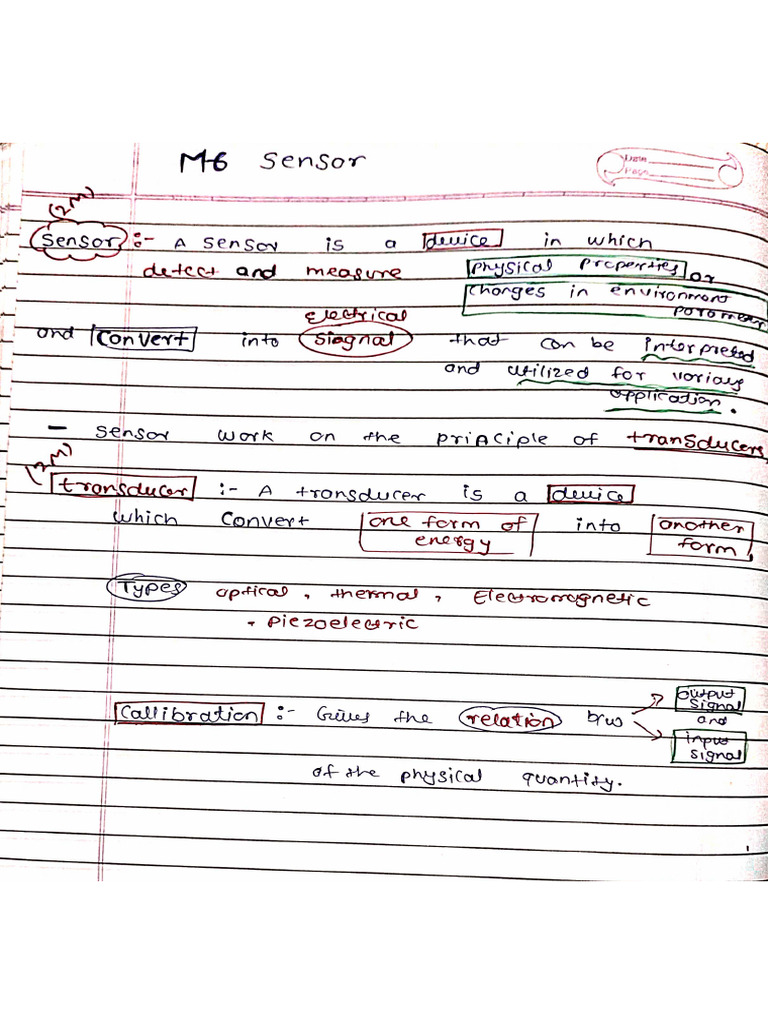 M-6 Sensor
Date
Page
(2M)
Sensor :- A sensor is a device in which
detect and measure physical properties or
changes in environment
parameter
Electrical
and Convert into siagnal that can be interpreted
and utilized for various
application.
- sensor work on the principle of transducers
(2M)
transducer :- A transducer is a device
which convert one form of into another
energy form
Types optical, thermal, Electromagnetic
, Piezoelectric
output
signal
Callibration :- Gives the relation b/w and
input
signal
of the physical quantity.